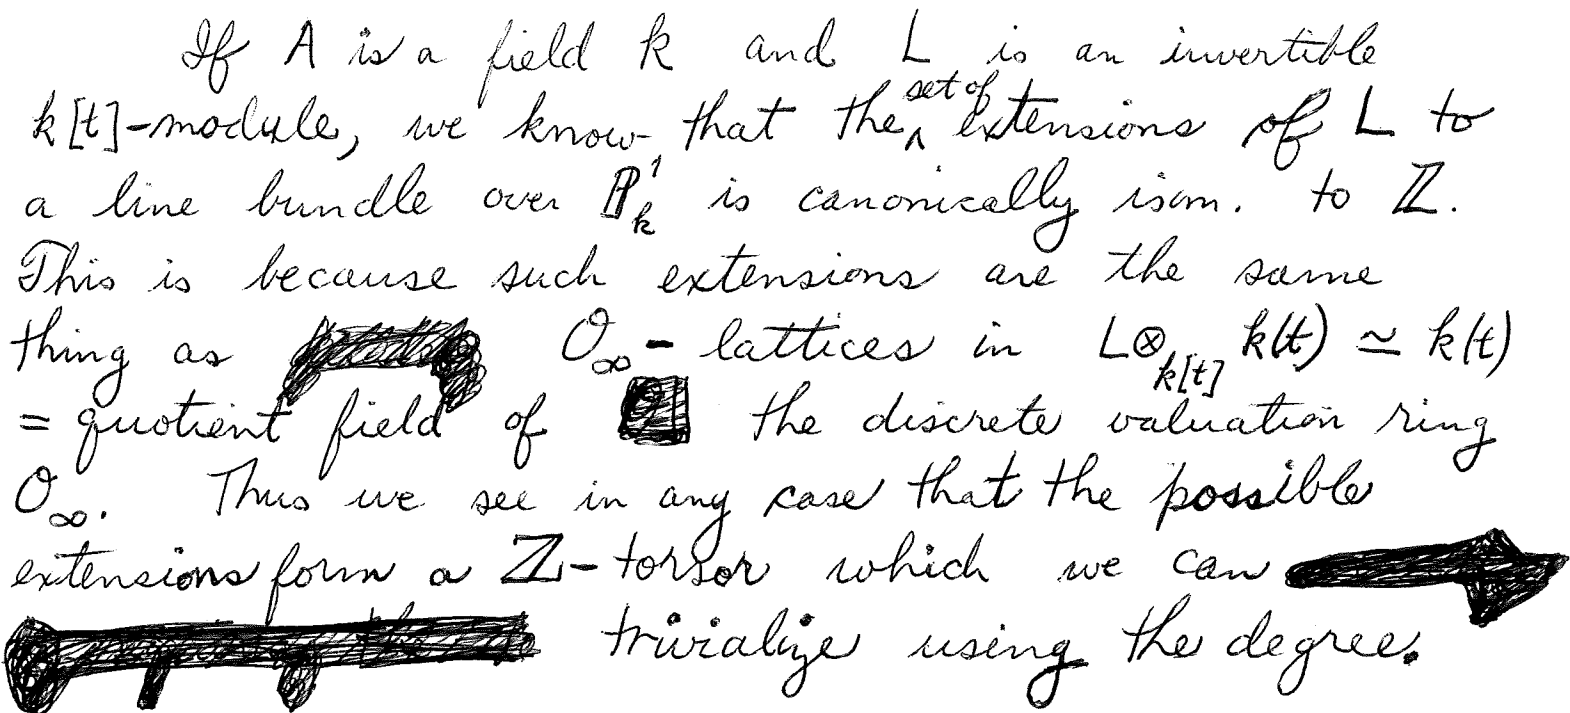 If A is a field k and L is an invertible
k[t]-module, we know that the set of extensions of L to
a line bundle over ℙ¹_k is canonically isom. to ℤ.
This is because such extensions are the same
thing as O_∞-lattices in L⊗_{k[t]} k(t) ≃ k(t)
= quotient field of the discrete valuation ring
O_∞. Thus we see in any case that the possible
extensions form a ℤ-torsor which we can
trivialize using the degree.